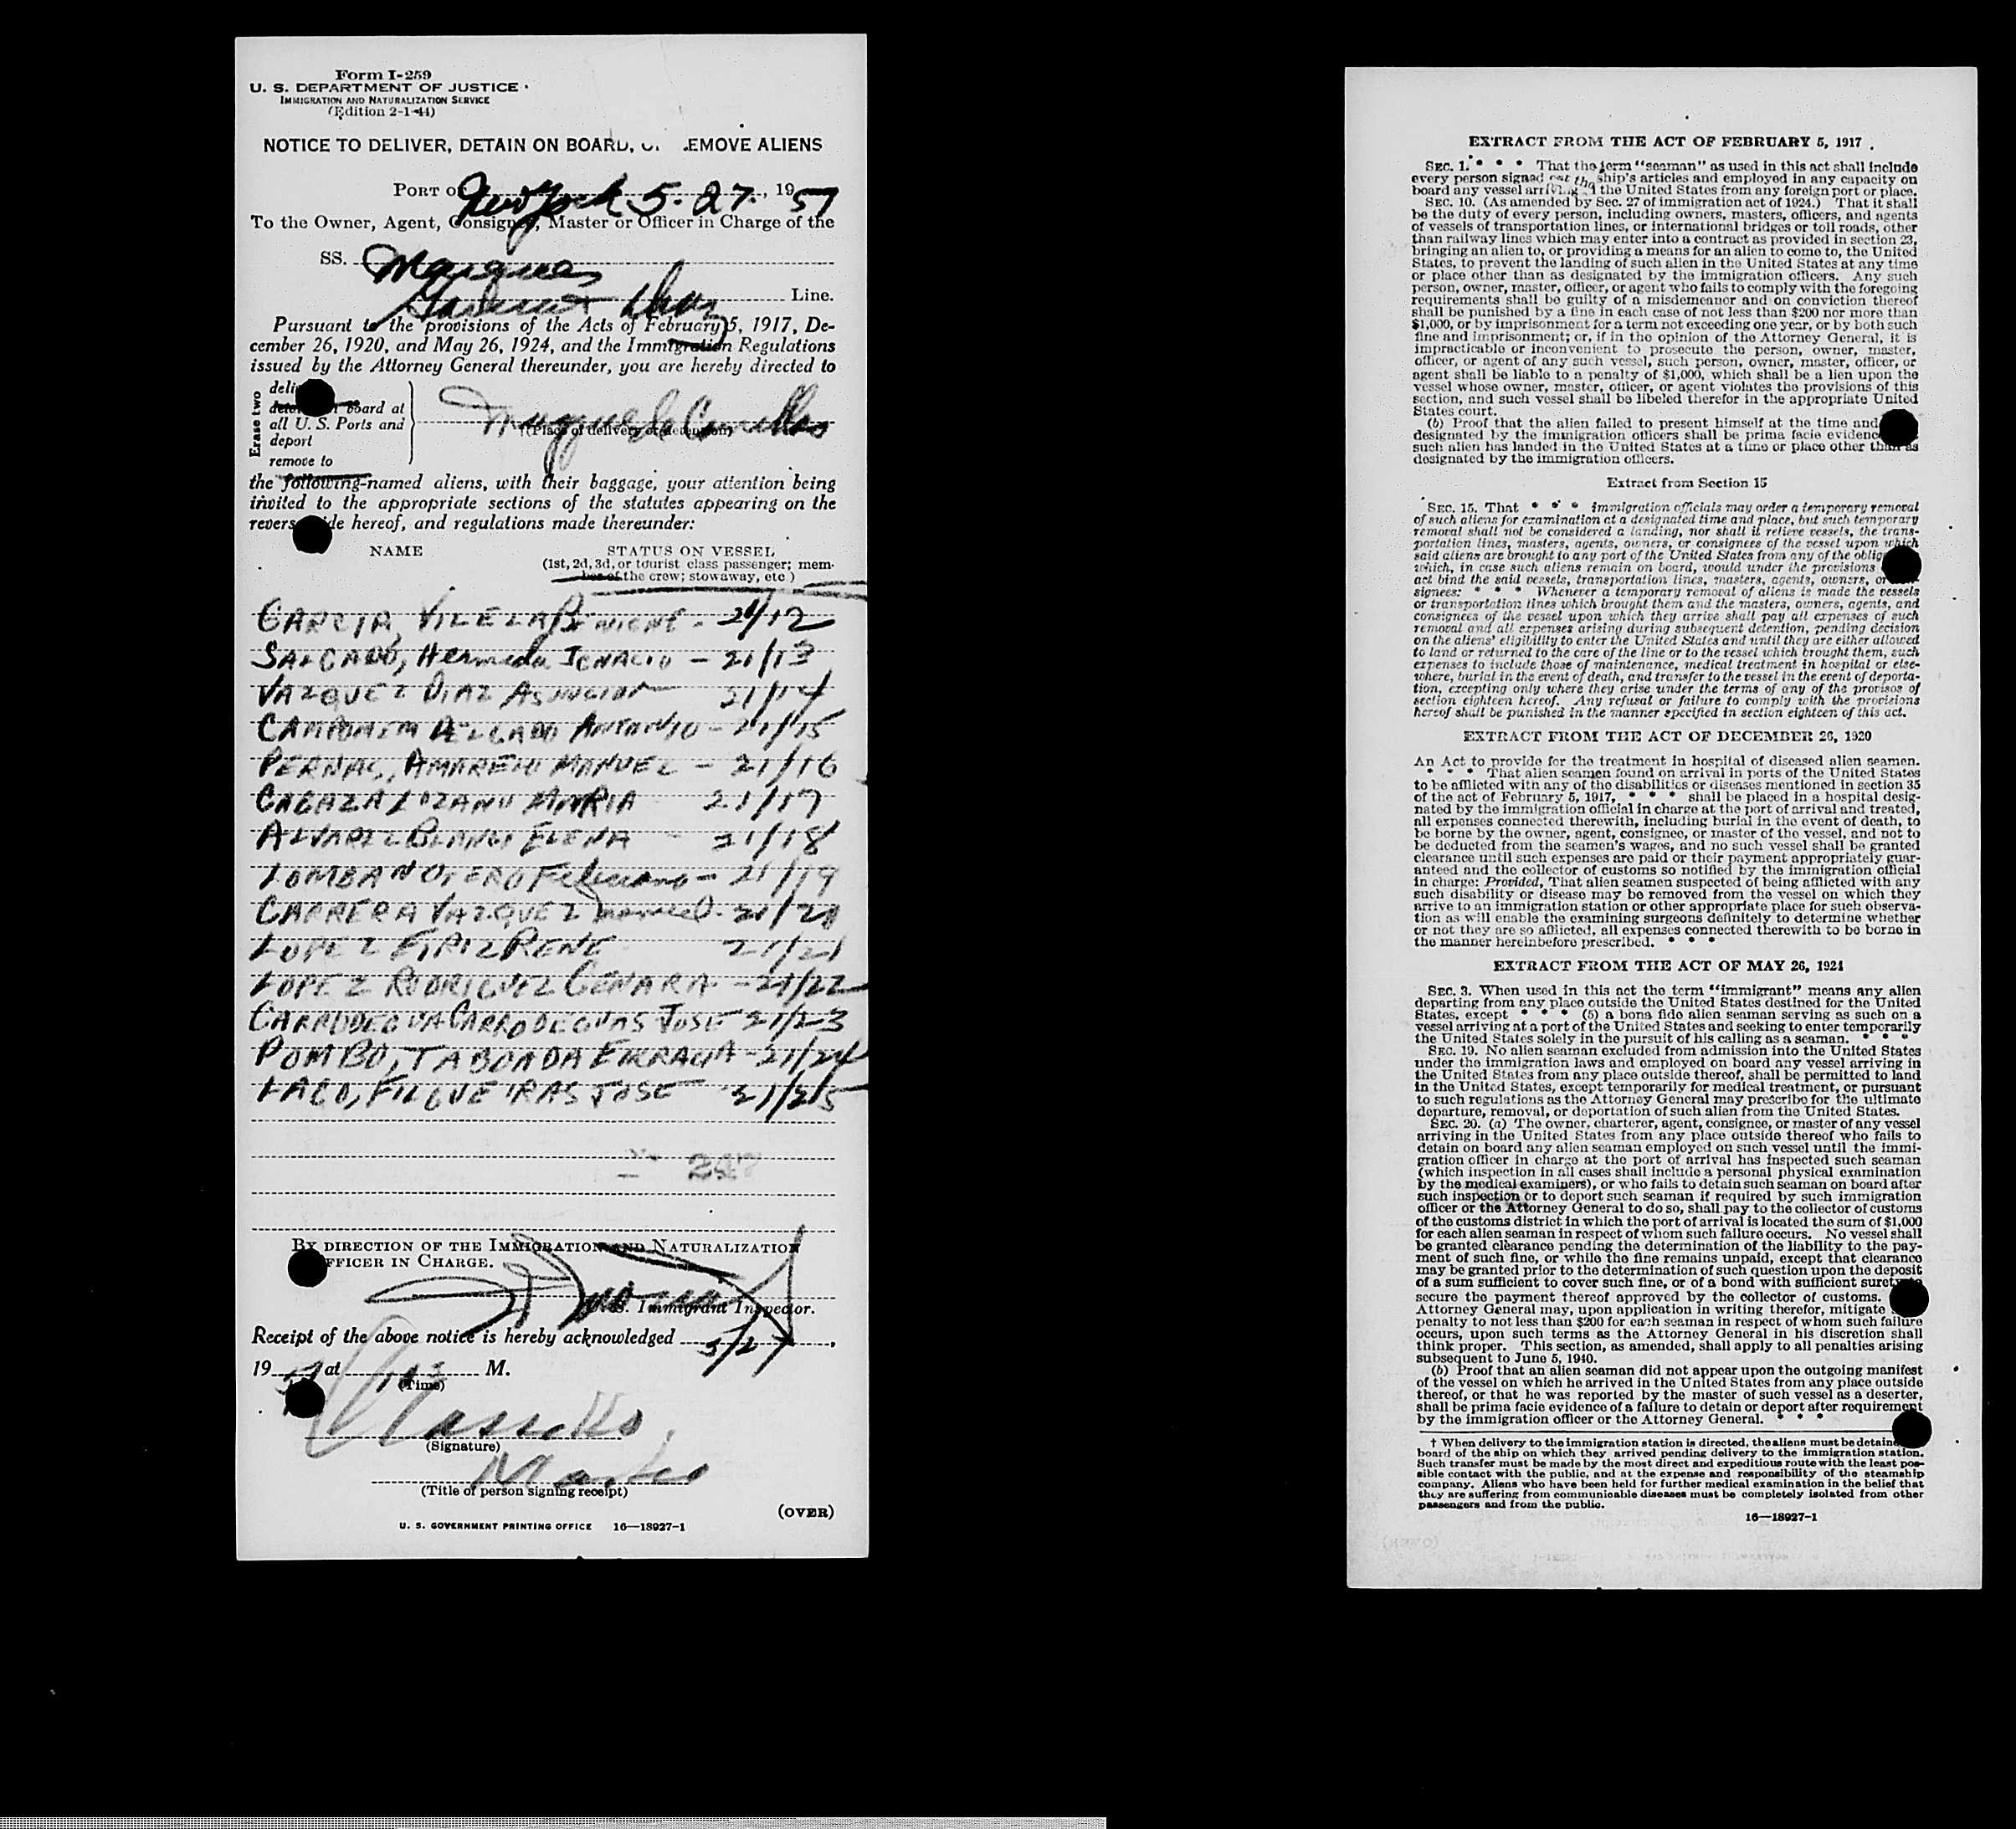 Form I-259
U. S. DEPARTMENT OF JUSTICE
IMMIGRATION AND NATURALIZATION SERVICE
(Edition 2-1-44)
NOTICE TO DELIVER, DETAIN ON BOARD, O. .EMOVE ALIENS
PORT of New York 5. 27. , 19 57
To the Owner, Agent, Consignee, Master or Officer in Charge of the
SS. Marques
Line.
Pursuant to the provisions of the Acts of February 5, 1917, De-
cember 26, 1920, and May 26, 1924, and the Immigration Regulations
issued by the Attorney General thereunder, you are hereby directed to
Erase two
board at
all U. S. Ports and
deport
remove to
†(Place of delivery or detention)
the following-named aliens, with their baggage, your attention being
invited to the appropriate sections of the statutes appearing on the
revers ide hereof, and regulations made thereunder:
NAME STATUS ON VESSEL
(1st, 2d, 3d, or tourist class passenger; mem-
ber of the crew; stowaway, etc.)
GARCIA, VILELA - 21/12
SALGADO, Hermida IGNACIO - 21/13
VAZQUEZ DIAZ ASUNCION 21/14
DELGADO ANTONIO - 21/15
PERNAS, AMARELO MANUEL - 21/16
LOZANO MARIA 21/17
ALVAREZ BLANCO ELENA - 21/18
LOMBAN OTERO Feliciano - 21/19
CARRERA VAZQUEZ Manuel - 21/20
LOPEZ EIRIZ RENE 21/21
LOPEZ RODRIGUEZ GENARA - 21/22
CARRODEGUAS JOSE 21/23
POMBO, TABOADA - 21/24
LAGO, FILGUEIRAS JOSE 21/25
BY DIRECTION OF THE IMMIGRATION AND NATURALIZATION
FFICER IN CHARGE.
U. S. Immigrant Inspector.
Receipt of the above notice is hereby acknowledged 5/27 ,
19 57 at M.
(Time)
(Signature)
Master
(Title of person signing receipt)
(OVER)
U. S. GOVERNMENT PRINTING OFFICE 16—18927-1
EXTRACT FROM THE ACT OF FEBRUARY 5, 1917
SEC. 1. * * * That the term "seaman" as used in this act shall include
every person signed on the ship's articles and employed in any capacity on
board any vessel arriving in the United States from any foreign port or place.
SEC. 10. (As amended by Sec. 27 of immigration act of 1924.) That it shall
be the duty of every person, including owners, masters, officers, and agents
of vessels of transportation lines, or international bridges or toll roads, other
than railway lines which may enter into a contract as provided in section 23,
bringing an alien to, or providing a means for an alien to come to, the United
States, to prevent the landing of such alien in the United States at any time
or place other than as designated by the immigration officers. Any such
person, owner, master, officer, or agent who fails to comply with the foregoing
requirements shall be guilty of a misdemeanor and on conviction thereof
shall be punished by a fine in each case of not less than $200 nor more than
$1,000, or by imprisonment for a term not exceeding one year, or by both such
fine and imprisonment; or, if in the opinion of the Attorney General, it is
impracticable or inconvenient to prosecute the person, owner, master,
officer, or agent of any such vessel, such person, owner, master, officer, or
agent shall be liable to a penalty of $1,000, which shall be a lien upon the
vessel whose owner, master, officer, or agent violates the provisions of this
section, and such vessel shall be libeled therefor in the appropriate United
States court.
(b) Proof that the alien failed to present himself at the time and
designated by the immigration officers shall be prima facie evidenc
such alien has landed in the United States at a time or place other than as
designated by the immigration officers.
Extract from Section 15
SEC. 15. That * * * immigration officials may order a temporary removal
of such aliens for examination at a designated time and place, but such temporary
removal shall not be considered a landing, nor shall it relieve vessels, the trans-
portation lines, masters, agents, owners, or consignees of the vessel upon which
said aliens are brought to any port of the United States from any of the oblig
which, in case such aliens remain on board, would under the provisions
act bind the said vessels, transportation lines, masters, agents, owners, or
signees: * * * Whenever a temporary removal of aliens is made the vessels
or transportation lines which brought them and the masters, owners, agents, and
consignees of the vessel upon which they arrive shall pay all expenses of such
removal and all expenses arising during subsequent detention, pending decision
on the aliens' eligibility to enter the United States and until they are either allowed
to land or returned to the care of the line or to the vessel which brought them, such
expenses to include those of maintenance, medical treatment in hospital or else-
where, burial in the event of death, and transfer to the vessel in the event of deporta-
tion, excepting only where they arise under the terms of any of the provisos of
section eighteen hereof. Any refusal or failure to comply with the provisions
hereof shall be punished in the manner specified in section eighteen of this act.
EXTRACT FROM THE ACT OF DECEMBER 26, 1920
An Act to provide for the treatment in hospital of diseased alien seamen.
* * * That alien seamen found on arrival in ports of the United States
to be afflicted with any of the disabilities or diseases mentioned in section 35
of the act of February 5, 1917, * * * shall be placed in a hospital desig-
nated by the immigration official in charge at the port of arrival and treated,
all expenses connected therewith, including burial in the event of death, to
be borne by the owner, agent, consignee, or master of the vessel, and not to
be deducted from the seamen's wages, and no such vessel shall be granted
clearance until such expenses are paid or their payment appropriately guar-
anteed and the collector of customs so notified by the immigration official
in charge: Provided, That alien seamen suspected of being afflicted with any
such disability or disease may be removed from the vessel on which they
arrive to an immigration station or other appropriate place for such observa-
tion as will enable the examining surgeons definitely to determine whether
or not they are so afflicted, all expenses connected therewith to be borne in
the manner hereinbefore prescribed. * * *
EXTRACT FROM THE ACT OF MAY 26, 1924
SEC. 3. When used in this act the term "immigrant" means any alien
departing from any place outside the United States destined for the United
States, except * * * (5) a bona fide alien seaman serving as such on a
vessel arriving at a port of the United States and seeking to enter temporarily
the United States solely in the pursuit of his calling as a seaman. * * *
SEC. 19. No alien seaman excluded from admission into the United States
under the immigration laws and employed on board any vessel arriving in
the United States from any place outside thereof, shall be permitted to land
in the United States, except temporarily for medical treatment, or pursuant
to such regulations as the Attorney General may prescribe for the ultimate
departure, removal, or deportation of such alien from the United States.
SEC. 20. (a) The owner, charterer, agent, consignee, or master of any vessel
arriving in the United States from any place outside thereof who fails to
detain on board any alien seaman employed on such vessel until the immi-
gration officer in charge at the port of arrival has inspected such seaman
(which inspection in all cases shall include a personal physical examination
by the medical examiners), or who fails to detain such seaman on board after
such inspection or to deport such seaman if required by such immigration
officer or the Attorney General to do so, shall pay to the collector of customs
of the customs district in which the port of arrival is located the sum of $1,000
for each alien seaman in respect of whom such failure occurs. No vessel shall
be granted clearance pending the determination of the liability to the pay-
ment of such fine, or while the fine remains unpaid, except that clearance
may be granted prior to the determination of such question upon the deposit
of a sum sufficient to cover such fine, or of a bond with sufficient surety to
secure the payment thereof approved by the collector of customs.
Attorney General may, upon application in writing therefor, mitigate
penalty to not less than $200 for each seaman in respect of whom such failure
occurs, upon such terms as the Attorney General in his discretion shall
think proper. This section, as amended, shall apply to all penalties arising
subsequent to June 5, 1940.
(b) Proof that an alien seaman did not appear upon the outgoing manifest
of the vessel on which he arrived in the United States from any place outside
thereof, or that he was reported by the master of such vessel as a deserter,
shall be prima facie evidence of a failure to detain or deport after requirement
by the immigration officer or the Attorney General. * * *
† When delivery to the immigration station is directed, the aliens must be detaine
board of the ship on which they arrived pending delivery to the immigration station.
Such transfer must be made by the most direct and expeditious route with the least pos-
sible contact with the public, and at the expense and responsibility of the steamship
company. Aliens who have been held for further medical examination in the belief that
they are suffering from communicable diseases must be completely isolated from other
passengers and from the public.
16—18927-1